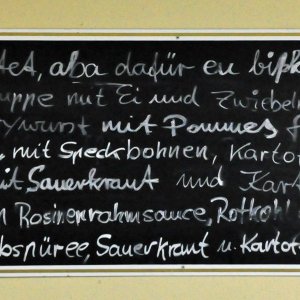 tet, aba dafür eu bißl
uppe mit Ei und Zwiebel
ywurst mit Pommes f
, mit Speckbohnen, Karto
it Sauerkraut und Kart
n Rosinenrahmsauce, Rotkohl
bspüree, Sauerkraut u. Kartof